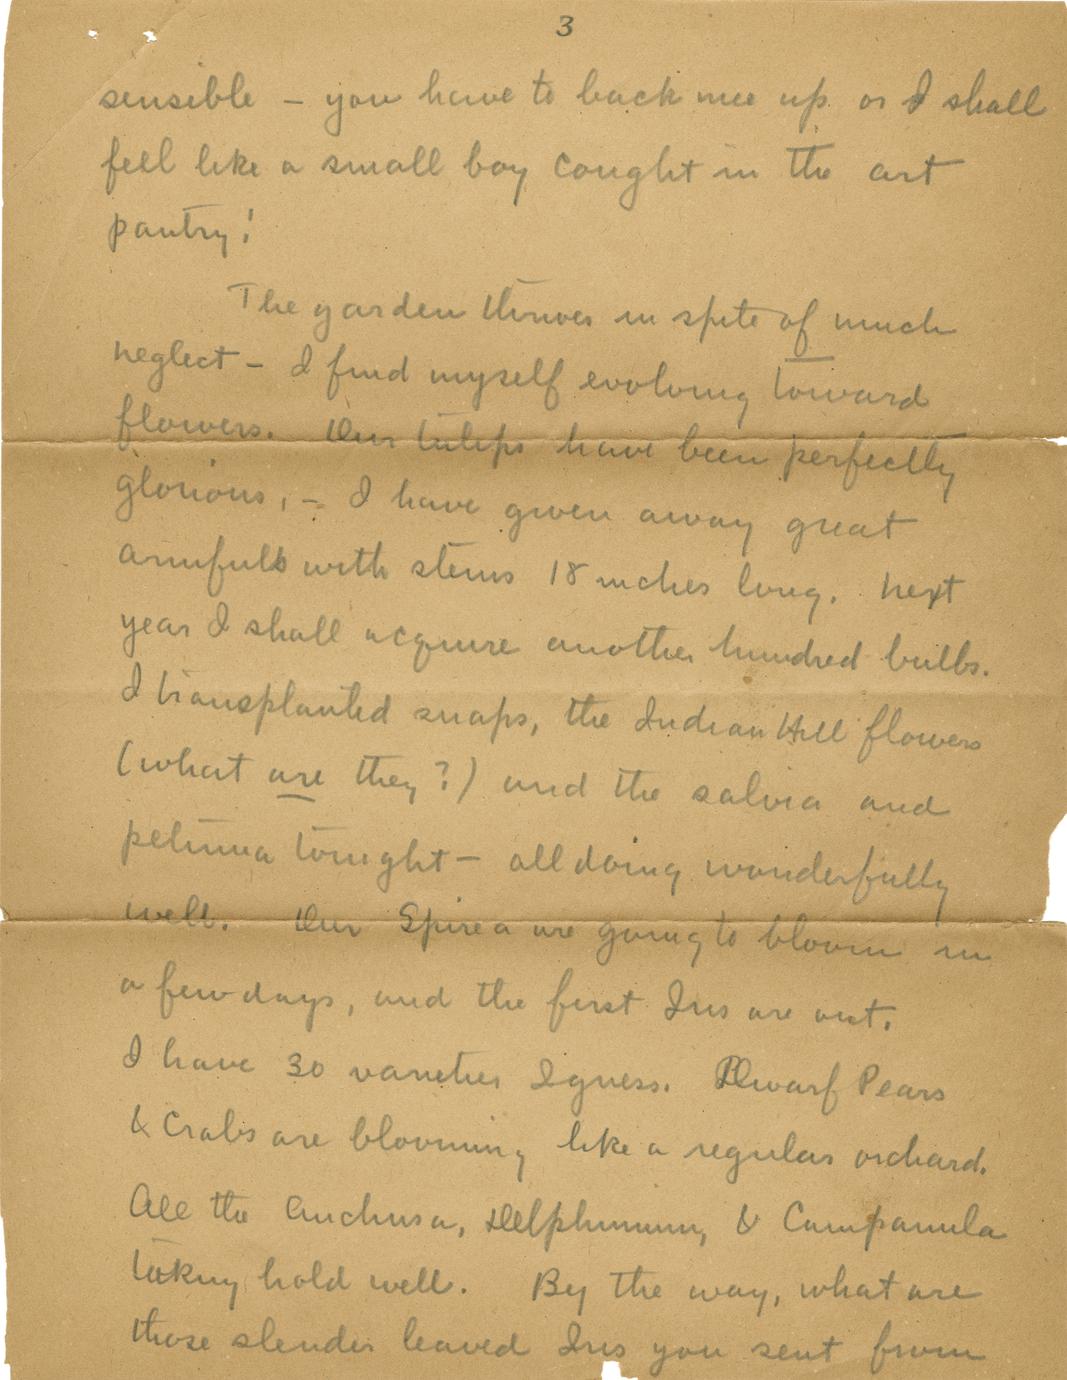 3
sensible – you have to back me up or I shall
feel like a small boy caught in the art
pantry!
The garden thrives in spite of much
neglect – I find myself evolving toward
flowers. Our tulips have been perfectly
glorious, – I have given away great
armfulls with stems 18 inches long. Next
year I shall acquire another hundred bulbs.
I transplanted snaps, the Indian Hill flowers
(what are they?) and the salvia and
petunia tonight – all doing wonderfully
well. Our Spirea are going to bloom in
a few days, and the first Iris are out.
I have 30 varieties I guess. Dwarf Pears
& Crabs are blooming like a regular orchard.
All the Anchusa, Delphinium, & Campanula
taking hold well. By the way, what are
those slender leaved Iris you sent from